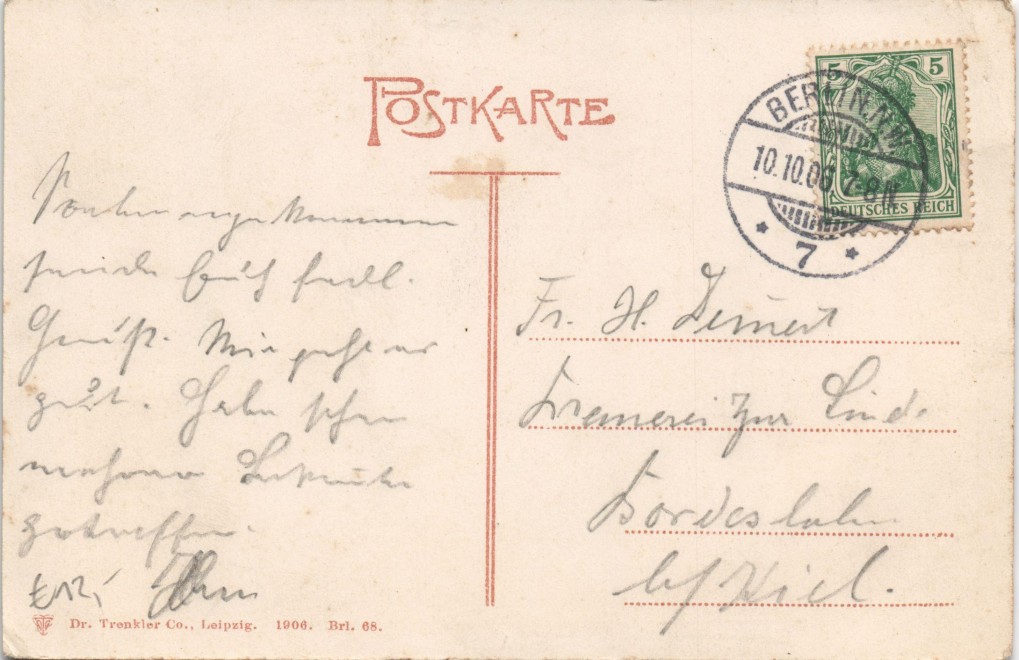 POSTKARTE
BERLIN. N.W.
10.10.06 7-8N.
* 7 *
5 5
DEUTSCHES REICH
angekommen
sende Euch frdl.
Grüße. Mir geht es
gut. Habe schon
mehrere Bekannte
getroffen.
Fr. H. Deinert
zur Linde
Bordesholm
b/Kiel.
Dr. Trenkler Co., Leipzig. 1906. Brl. 68.